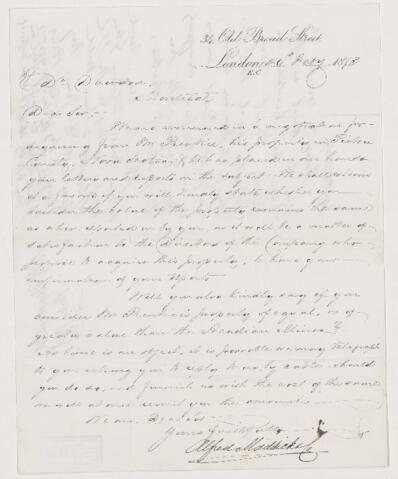 34, Old Broad Street
London, 26th Feby 1873
E.C.
Dr. Dawson
Montreal
Dear Sir,-
We are concerned in a negotiation for
acquiring from Mr Prentice, his property in Pictou
County, Nova Scotia & he has placed in our hands
your letters and reports on the subject. We shall esteem
it a favor if you will kindly state whether you
consider the value of the property remains the same
as when reported on by you, as it will be a matter of
satisfaction to the Directors of the Company who
propose to acquire this property, to have your
confirmation of your reports
Will you also kindly say if you
consider Mr Prentice's property of equal, or of
greater value than the Acadian Mines?
As time is an object, it is probable we may Telegraph
to you asking you to reply to us by cable, should
you do so, & furnish us with the cost of the same
we will at once remit you the amount
We are, Dear Sir
Yours faithfully
Alfred